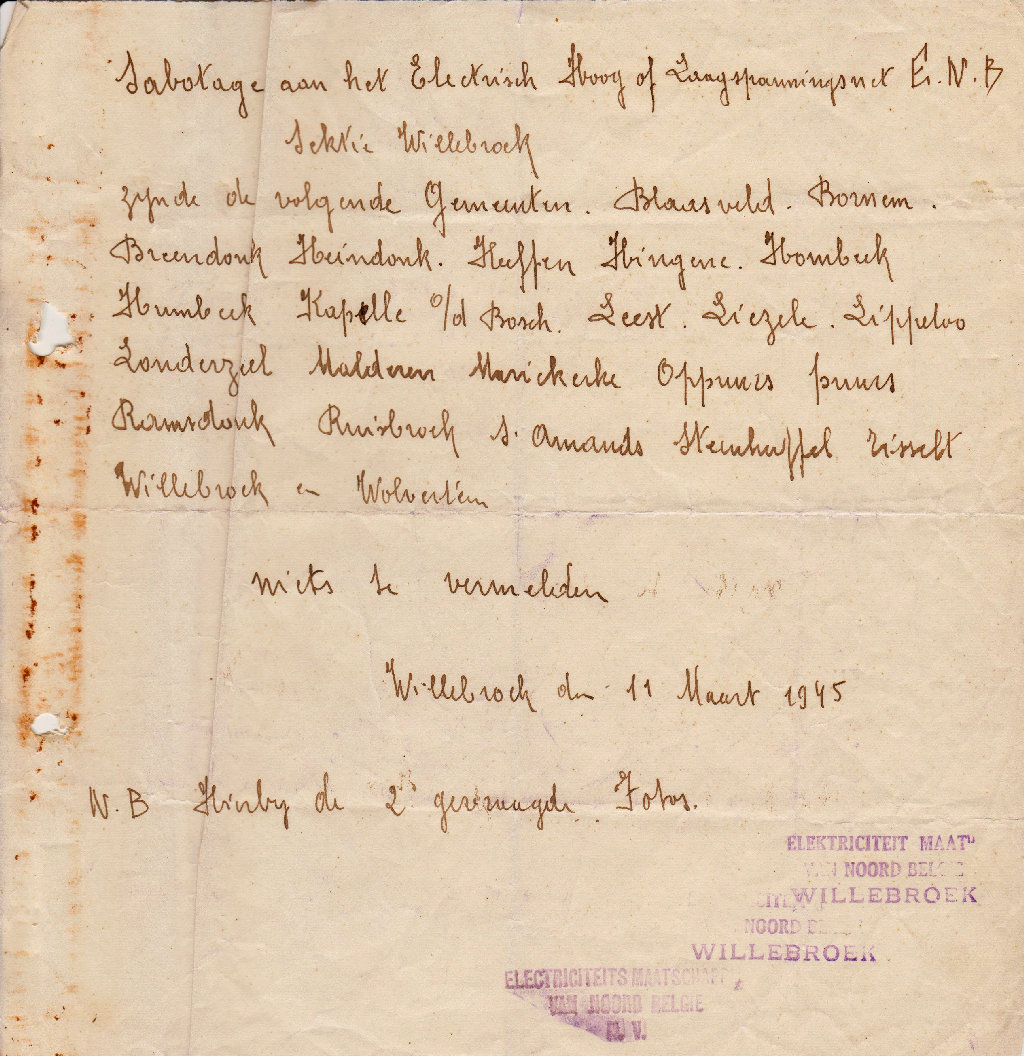 Sabotage aan het Electrisch Hoog of Laagspanningsnet E.N.B
Sektie Willebroek
zynde de volgende Gemeenten. Blaasveld. Bornem.
Breendonk Heindonk. Heffen Hingene. Hombeek
Humbeek Kapelle o/d Bosch. Leest. Liezele. Lippeloo
Londerzeel Malderen Mariekerke Oppuurs puurs
Ramsdonk Ruisbroek St Amands Steenhuffel Tisselt
Willebroek en Wolvertem
niets te vermelden
Willebroek den 11 Maart 1945
N.B Hierby de 2 gevraagde Fotos.
ELEKTRICITEIT MAAT
VAN NOORD BELGIE
WILLEBROEK
NOORD
WILLEBROEK
ELECTRICITEITS MAATSCHAPP
VAN NOORD BELGIE
N. V.